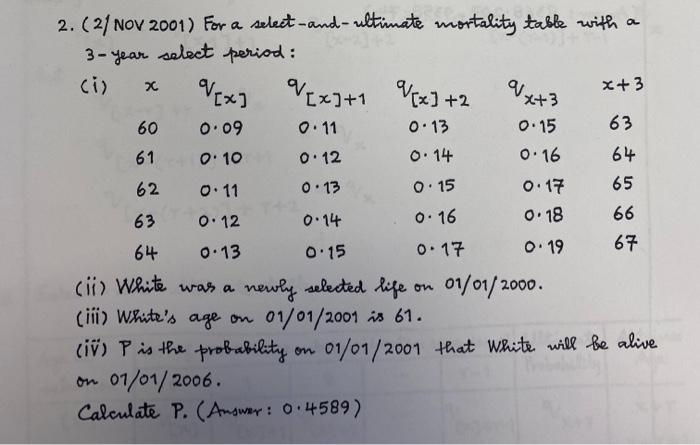 2. (2/ NOV 2001) For a select-and-ultimate mortality table with a
3-year select period:
(i) x q[x] q[x]+1 q[x]+2 qx+3 x+3
60 0.09 0.11 0.13 0.15 63
61 0.10 0.12 0.14 0.16 64
62 0.11 0.13 0.15 0.17 65
63 0.12 0.14 0.16 0.18 66
64 0.13 0.15 0.17 0.19 67
(ii) White was a newly selected life on 01/01/2000.
(iii) White's age on 01/01/2001 is 61.
(iv) P is the probability on 01/01/2001 that White will be alive
on 01/01/2006.
Calculate P. (Answer: 0.4589)